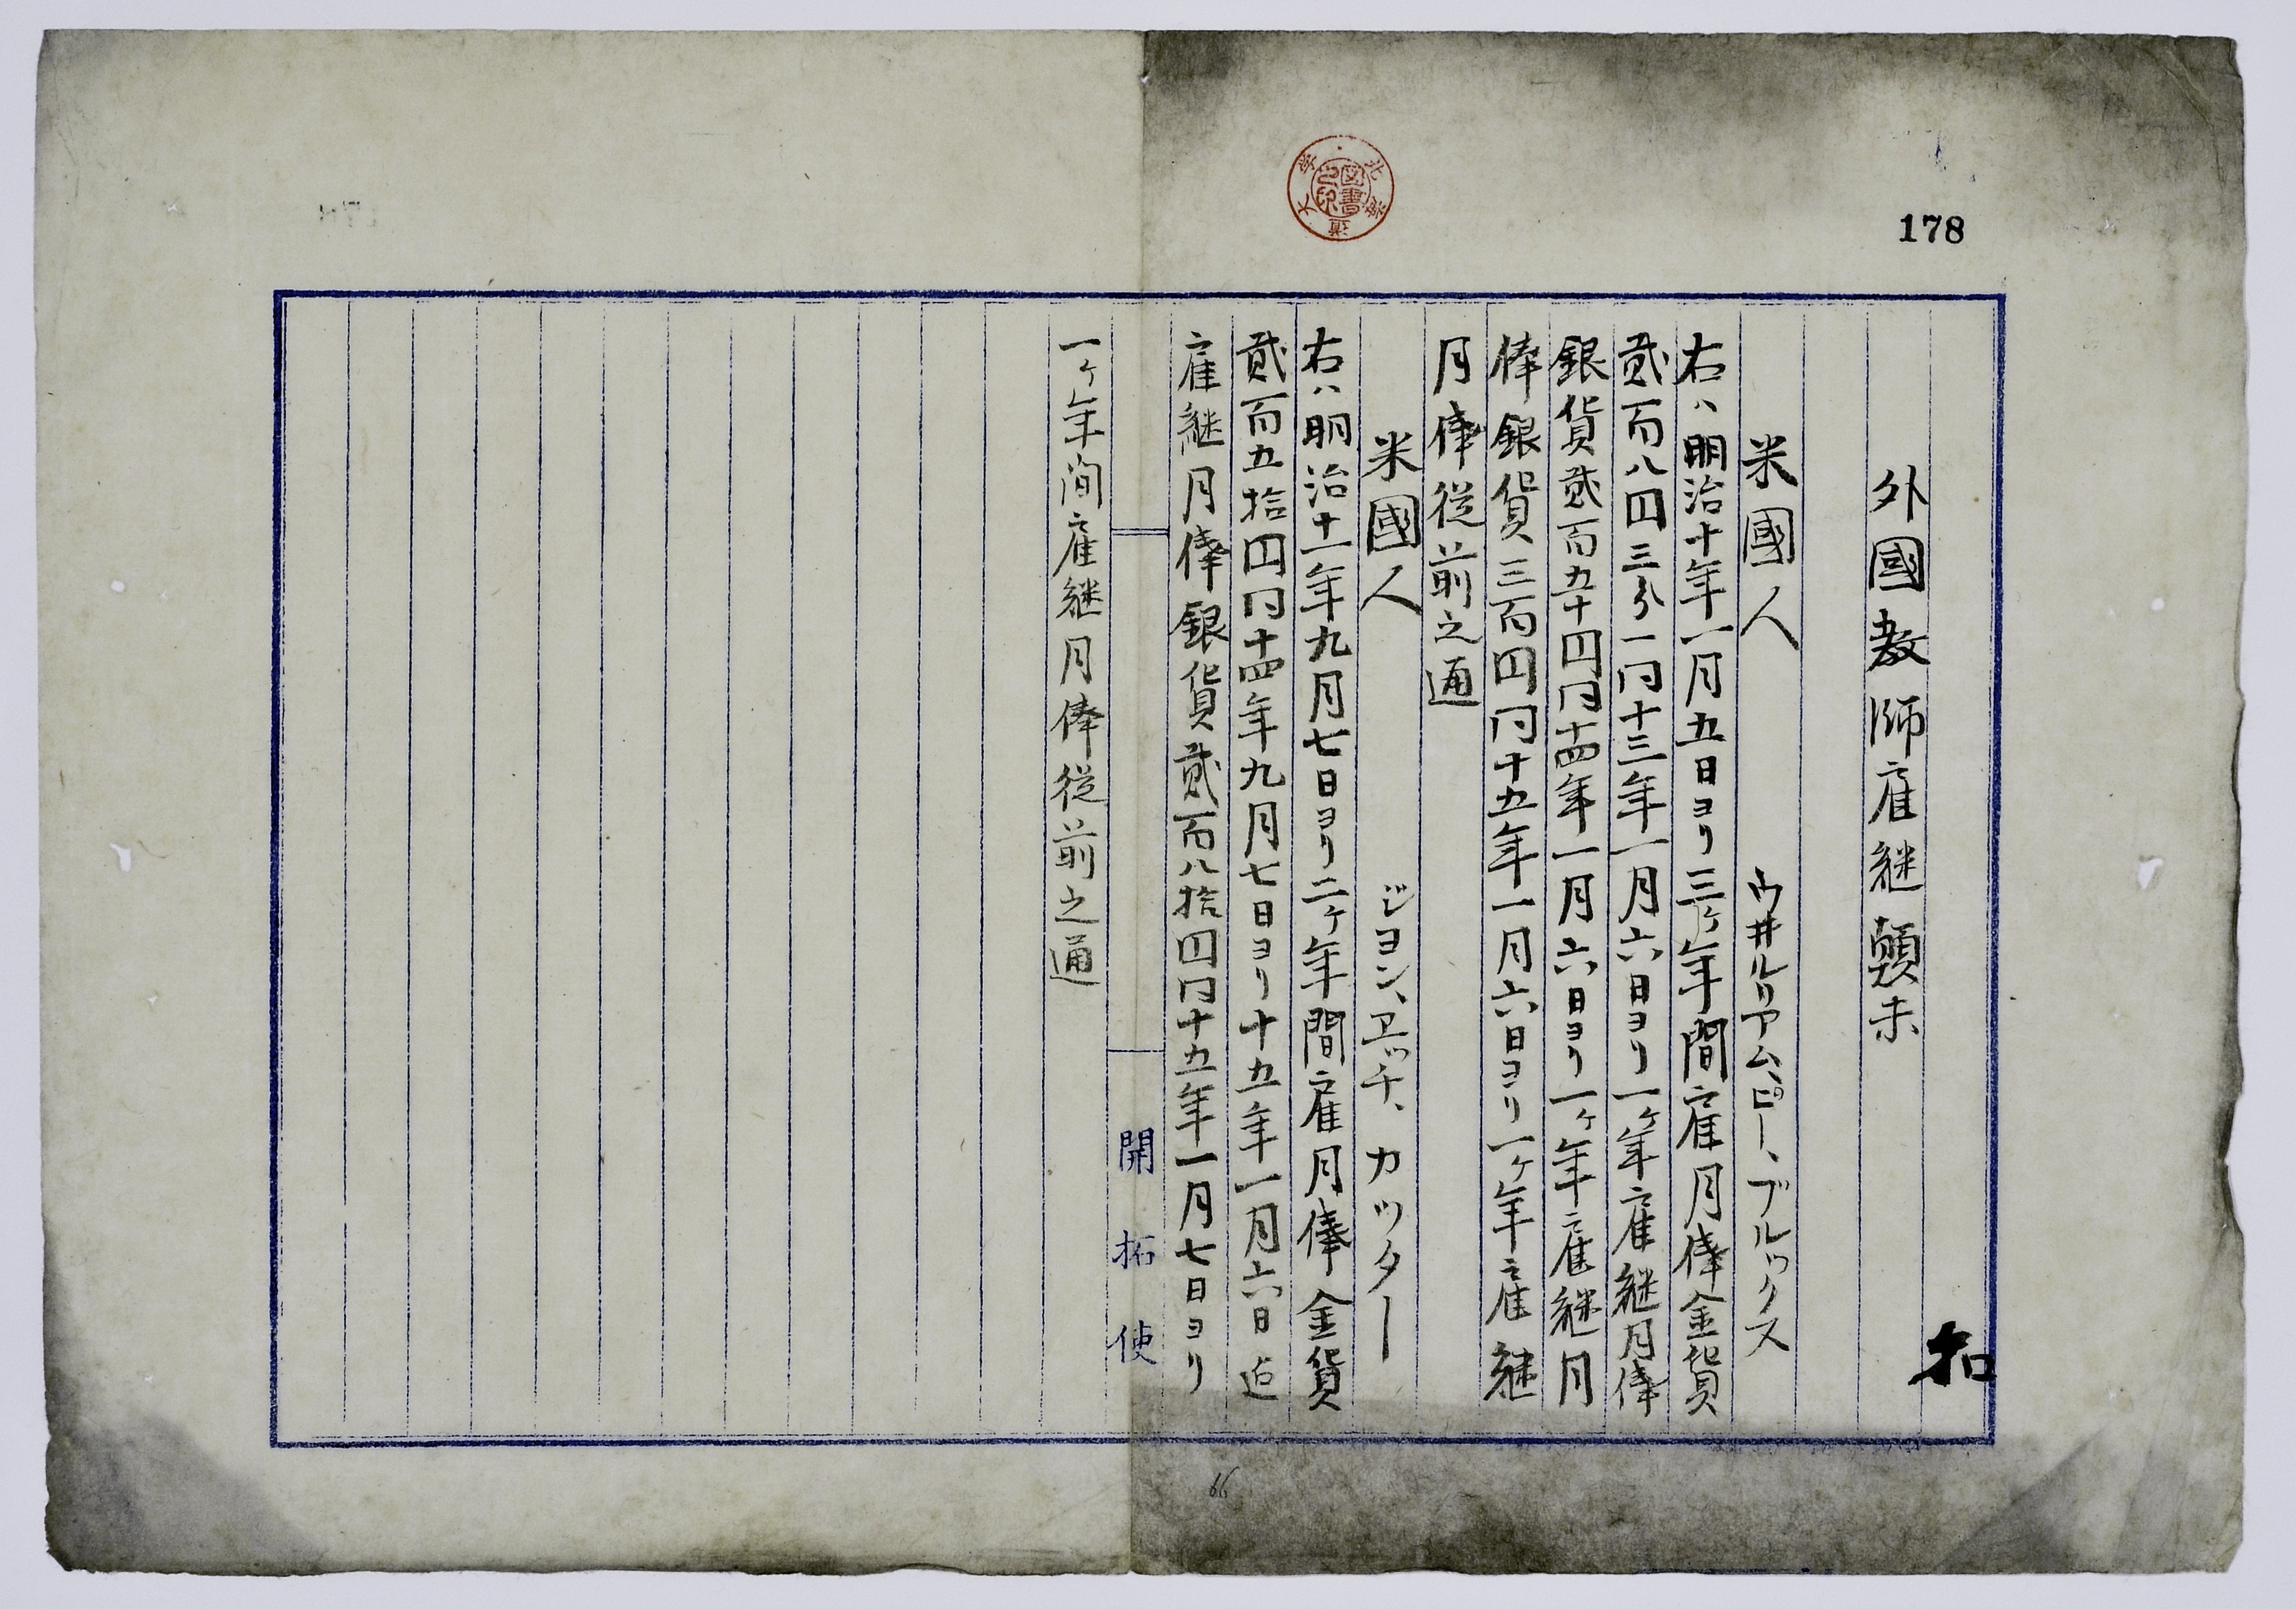 178
扣
外國教師雇継顛末
米國人 ウ井ルリアム、ピー、ブルックス
右ハ明治十年一月五日ヨリ三ヶ年間雇月俸金貨
貳百八円三分一同十三年一月六日ヨリ一ヶ年雇継月俸
銀貨貳百五十円同十四年一月六日ヨリ一ヶ年雇継月
俸銀貨三百円同十五年一月六日ヨリ一ヶ年雇継
月俸従前之通
米國人 ジヨン、ヱッチ、カッター
右ハ明治十一年九月七日ヨリ二ヶ年間雇月俸金貨
貳百五拾円同十四年九月七日ヨリ十五年一月六日迠
雇継月俸銀貨貳百八拾円同十五年一月七日ヨリ
開拓使
一ヶ年間雇継月俸従前之通
北海道大学
図書之印
66